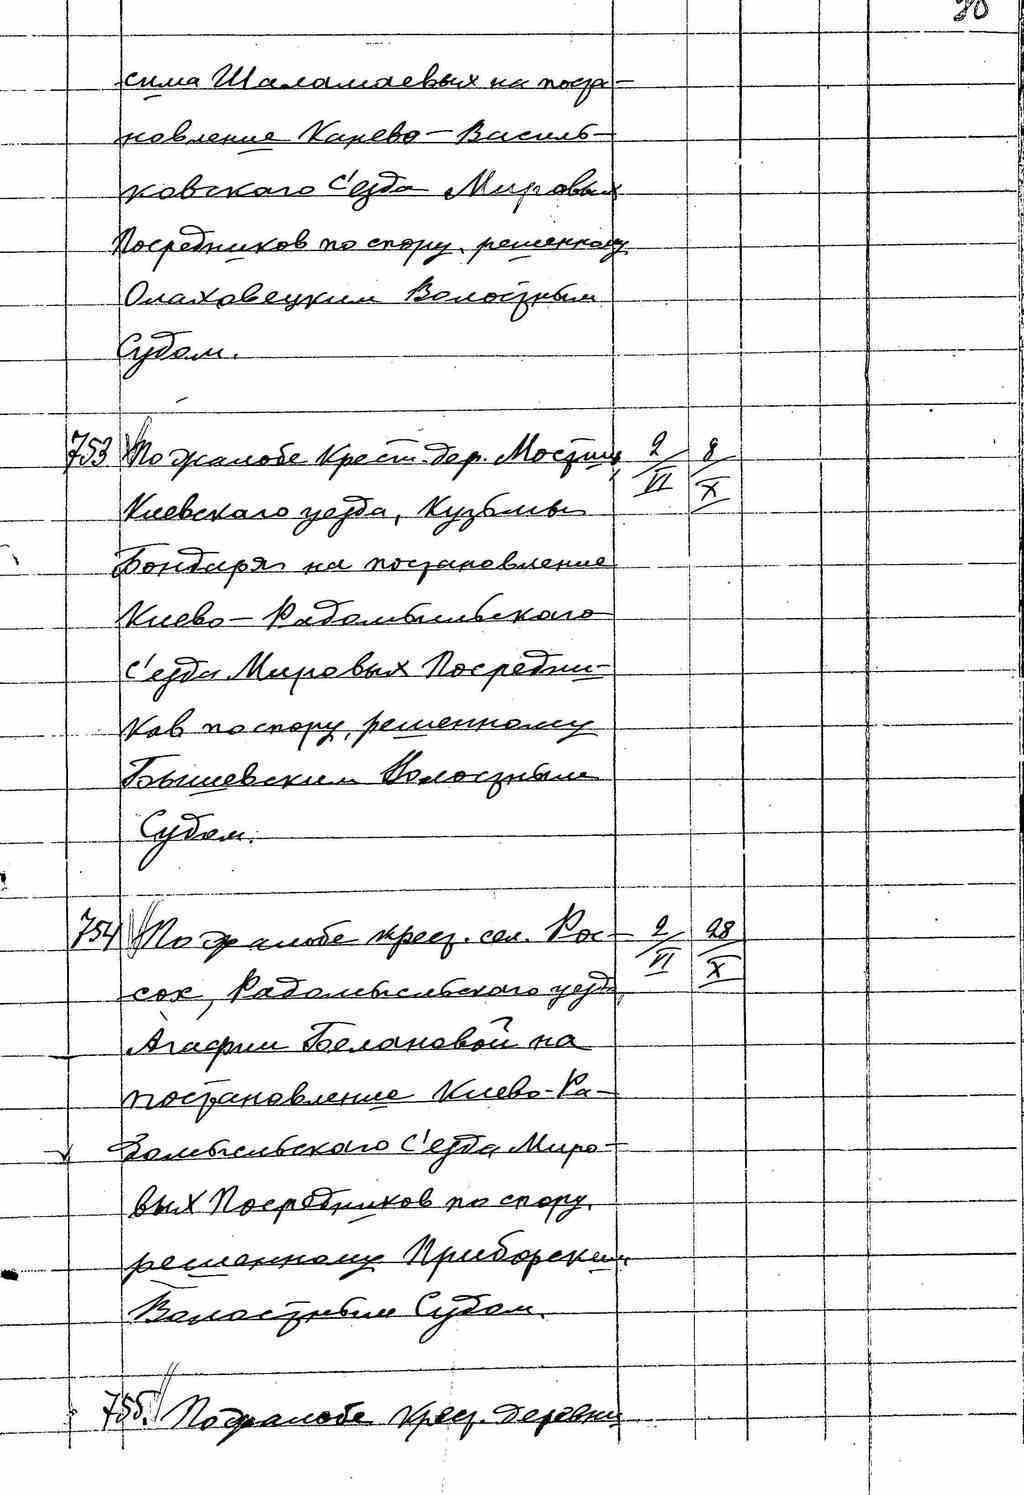 сима Шаламаевых на поста-
новление Канево-Василь-
ковского С'езда Мировых
Посредников по спору, решенному
Ольховецким Волостным
Судом.
753 По жалобе Крест. дер. Мостищ, 2/VI 8/X
Киевского уезда, Кузьмы
Бондаря на постановление
Киево-Радомысльского
С'езда Мировых Посредни-
ков по спору, решенному
Бышевским Волостным
Судом.
754 По жалобе крест. сел. Рос- 2/VI 28/X
сох, Радомысльского уезда,
Агафии Белановой на
постановление Киево-Ра-
домысльского С'езда Миро-
вых Посредников по спору,
решенному Приборским
Волостным Судом.
755. По жалобе Крест. деревни